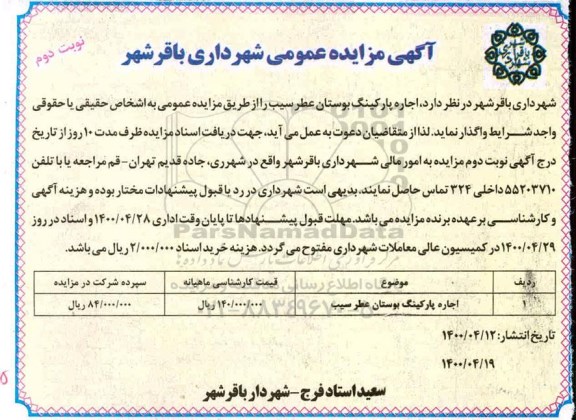 آگهی مزایده عمومی شهرداری باقرشهر
نوبت دوم
شهرداری باقرشهر در نظر دارد، اجاره پارکینگ بوستان عطر سیب را از طریق مزایده عمومی به اشخاص حقیقی یا حقوقی
واجد شرایط واگذار نماید. لذا از متقاضیان دعوت به عمل می آید، جهت دریافت اسناد مزایده ظرف مدت ۱۰ روز از تاریخ
درج آگهی نوبت دوم مزایده به امور مالی شهرداری باقرشهر واقع در شهرری، جاده قدیم تهران-قم مراجعه یا با تلفن
۵۵۲۰۳۷۱۰ داخلی ۳۲۴ تماس حاصل نمایند. بدیهی است شهرداری در رد یا قبول پیشنهادات مختار بوده و هزینه آگهی
و کارشناسی بر عهده برنده مزایده می باشد. مهلت قبول پیشنهادها تا پایان وقت اداری ۱۴۰۰/۰۴/۲۸ و اسناد در روز
۱۴۰۰/۰۴/۲۹ در کمیسیون عالی معاملات شهرداری مفتوح می گردد. هزینه خرید اسناد ۲/۰۰۰/۰۰۰ ریال می باشد.
ParsNamadData
ردیف موضوع قیمت کارشناسی ماهیانه سپرده شرکت در مزایده
۱ اجاره پارکینگ بوستان عطر سیب ۱۴۰/۰۰۰/۰۰۰ ریال ۸۴/۰۰۰/۰۰۰ ریال
تاریخ انتشار: ۱۴۰۰/۰۴/۱۲
۱۴۰۰/۰۴/۱۹
سعید استاد فرج - شهردار باقرشهر